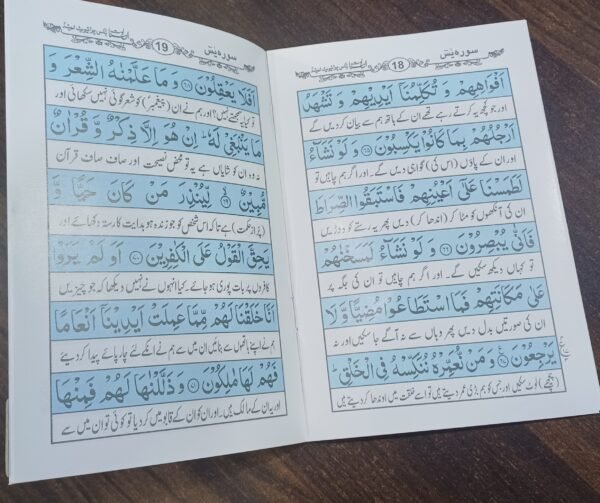 سورہ یٰسٓ
18
اَفْوَاهِهِمْ وَ تُكَلِّمُنَاۤ اَیْدِیْهِمْ وَ تَشْهَدُ
اور جو کچھ یہ کرتے رہے تھے ان کے ہاتھ ہم سے بیان کردیں گے
اَرْجُلُهُمْ بِمَا كَانُوْا یَكْسِبُوْنَ ۶۵ وَ لَوْ نَشَآءُ
اور ان کے پاؤں (اس کی) گواہی دیں گے۔ اور اگر ہم چاہیں تو
لَطَمَسْنَا عَلٰۤى اَعْیُنِهِمْ فَاسْتَبَقُوا الصِّرَاطَ
ان کی آنکھوں کو مٹا کر (اندھا کر) دیں پھر یہ رستے کو دوڑیں
فَاَنّٰى یُبْصِرُوْنَ ۶۶ وَ لَوْ نَشَآءُ لَمَسَخْنٰهُمْ
تو کہاں دیکھ سکیں گے۔ اور اگر ہم چاہیں تو ان کی جگہ پر
عَلٰى مَكَانَتِهِمْ فَمَا اسْتَطَاعُوْا مُضِیًّا وَّ لَا
ان کی صورتیں بدل دیں پھر وہاں سے نہ آگے جا سکیں اور نہ
یَرْجِعُوْنَ ۶۷ وَ مَنْ نُّعَمِّرْهُ نُنَكِّسْهُ فِی الْخَلْقِ ؕ
(پیچھے) لوٹ سکیں اور جس کو ہم بڑی عمر دیتے ہیں تو اسے خلقت میں اوندھا کردیتے ہیں
سورہ یٰسٓ
19
اَفَلَا یَعْقِلُوْنَ ۶۸ وَ مَا عَلَّمْنٰهُ الشِّعْرَ وَ
تو کیا یہ سمجھتے نہیں؟ اور ہم نے ان (پیغمبر) کو شعر گوئی نہیں سکھائی اور
مَا یَنْۢبَغِیْ لَهٗ ؕ اِنْ هُوَ اِلَّا ذِكْرٌ وَّ قُرْاٰنٌ
نہ وہ ان کو شایاں ہے یہ تو محض نصیحت اور صاف صاف قرآن
مُّبِیْنٌ ۶۹ لِّیُنْذِرَ مَنْ كَانَ حَیًّا وَّ
(پُرازحکمت) ہے تاکہ اس شخص کو جو زندہ ہو ہدایت کا رستہ دکھائے اور
یَحِقَّ الْقَوْلُ عَلَى الْكٰفِرِیْنَ ۷۰ اَوَ لَمْ یَرَوْا
کافروں پر بات پوری ہو جائے۔ کیا انہوں نے نہیں دیکھا کہ جو چیزیں
اَنَّا خَلَقْنَا لَهُمْ مِّمَّا عَمِلَتْ اَیْدِیْنَاۤ اَنْعَامًا
ہم نے اپنے ہاتھوں سے بنائیں ان میں سے ہم نے انکے لئے چارپائے پیدا کر دیئے
فَهُمْ لَهَا مٰلِكُوْنَ ۷۱ وَ ذَلَّلْنٰهَا لَهُمْ فَمِنْهَا
اور یہ ان کے مالک ہیں۔ اور ان کو ان کے قابو میں کر دیا تو کوئی تو ان میں سے